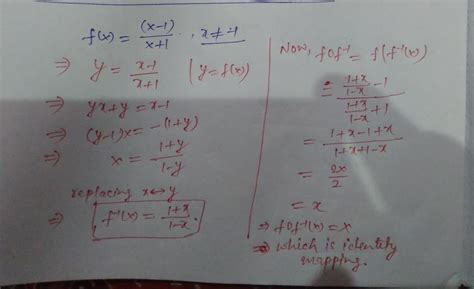 f(x) = (x-1)/(x+1), x≠-1
⇒ y = (x-1)/(x+1) | y=f(x)
⇒ yx+y = x-1
⇒ (y-1)x = -(1+y)
⇒ x = (1+y)/(1-y)
replacing x↔y
⇒ f⁻¹(x) = (1+x)/(1-x).
Now, fof⁻¹ = f(f⁻¹(x))
= ((1+x)/(1-x) - 1)/((1+x)/(1-x) + 1)
= (1+x-1+x)/(1+x+1-x)
= 2x/2
= x
⇒ fof⁻¹(x) = x
⇒ which is identity
mapping.